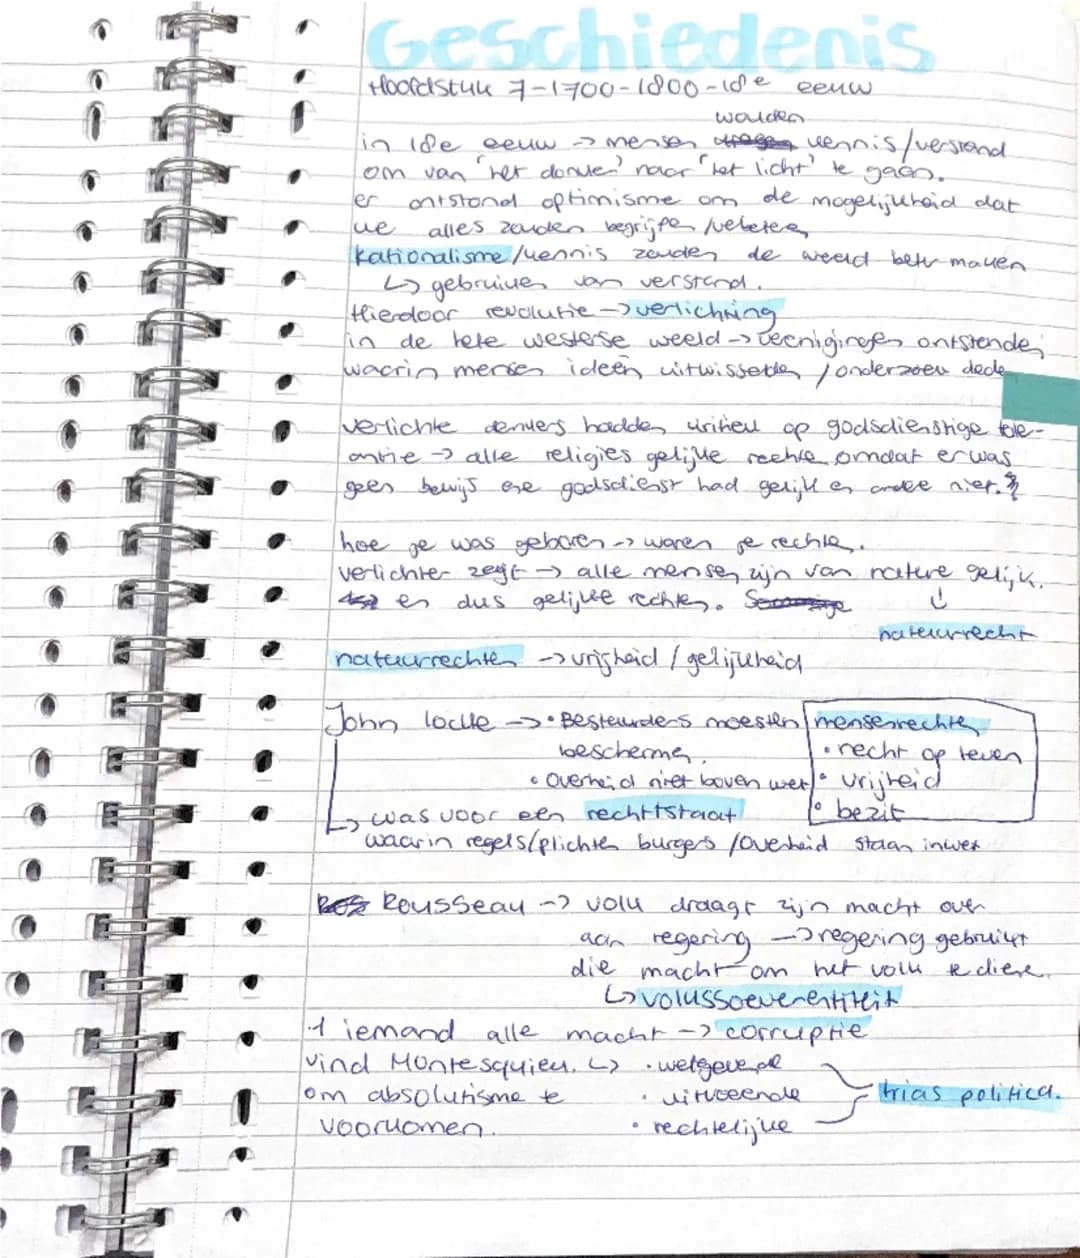 Geschiedenis
Hoofdstuk 7-1700-1800-18e eeuw
wouden
in 18e eeuw -> mensen kennis/verstand
om van 'het donker' naar 'het licht' te gaan.
er ontstond optimisme om de mogelijkheid dat
we alles zouden begrijpen/verbeteren
Rationalisme/kennis zouden de wereld beter maken
↳ gebruiken van verstand.
Hierdoor revolutie -> verlichting
in de hele westerse wereld -> verenigingen ontstonden
waarin mensen ideeën uitwisselden / onderzoek deden
verlichte denkers hadden kritiek op godsdienstige tole-
antie -> alle religies gelijke rechten omdat er was
geen bewijs ene godsdienst had gelijk en andere niet.
hoe je was geboren -> waren je rechten.
verlichter zegt -> alle mensen zijn van nature gelijk.
en dus gelijke rechten. ↓
natuurrecht
natuurrechten -> vrijheid / gelijkheid
John locke -> • Bestuurders moesten mensenrechten
beschermen. • recht op leven
• Overheid niet boven wet • vrijheid
↳ was voor een rechtstaat • bezit
waarin regels/plichten burgers /overheid staan in wet
Rousseau -> volk draagt zijn macht over
aan regering -> regering gebruikt
die macht om het volk te dienen.
↳ volkssoevereiniteit
1 iemand alle macht -> corruptie
vind Montesquieu. ↳ • wetgevende
om absolutisme te • uitvoerende trias politica.
voorkomen. • rechtelijke